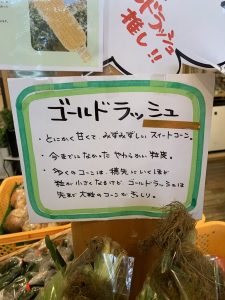 ドラッシュ
推し!!
ゴールドラッシュ
・とにかく甘くて、みずみずしいスイートコーン。
・今までになかったやわらかい粒皮。
・多くのコーンは、穂先にいくほど
粒が小さくなるけど、ゴールドラッシュは
先まで大粒のコーンがぎっしり。